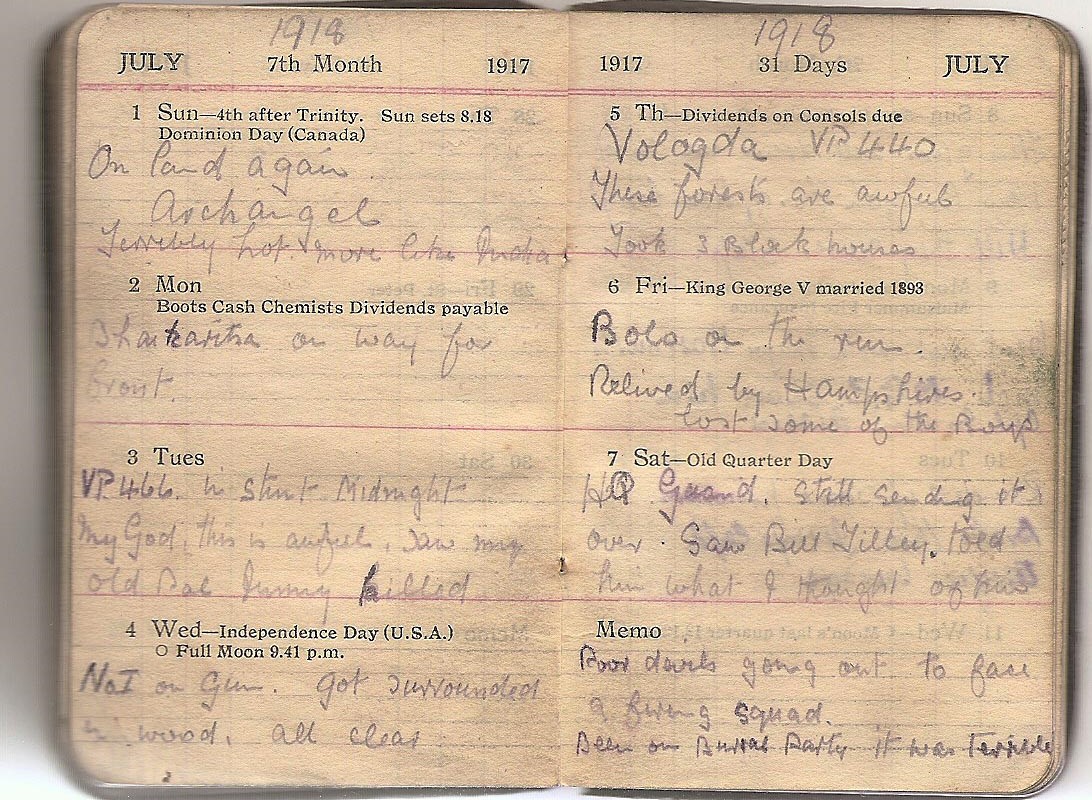 1918
JULY 7th Month 1917
1 Sun—4th after Trinity. Sun sets 8.18
Dominion Day (Canada)
On land again
Archangel
Terribly hot. more like India
2 Mon
Boots Cash Chemists Dividends payable
on way for
front.
3 Tues
VP 466. in stunt Midnight
My God, this is awful. Saw my
old Pal Jimmy killed
4 Wed—Independence Day (U.S.A.)
O Full Moon 9.41 p.m.
No I on Gun. Got surrounded
in wood. all clear
1918
1917 31 Days JULY
5 Th—Dividends on Consols due
Vologda VP 440
These forests are awful
Took 3 Block houses
6 Fri—King George V married 1893
Bolo on the run.
Relived by Hampshires.
lost some of the Boys
7 Sat—Old Quarter Day
HQ Guard. Still sending it
over. Saw Bill Tilley. told
him what I thought of him
Memo
Poor devils going out to face
a firing squad.
Been on Burial Party it was terrible